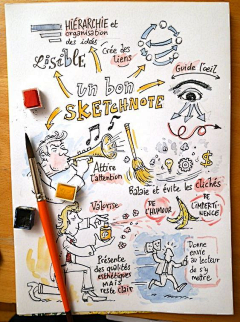 HIÉRARCHIE et
organisation
des idées
Lisible
Crée des
liens
Guide l'oeil
un bon
SKETCHNOTE
Attire
l'attention
Balaie et évite les clichés
Valorise
DE
L'HUMOUR
DE
L'IMPERTI-
NENCE
Présente
des qualités
esthétiques
MAIS
reste clair
Donne
envie
au lecteur
de s'y
mettre